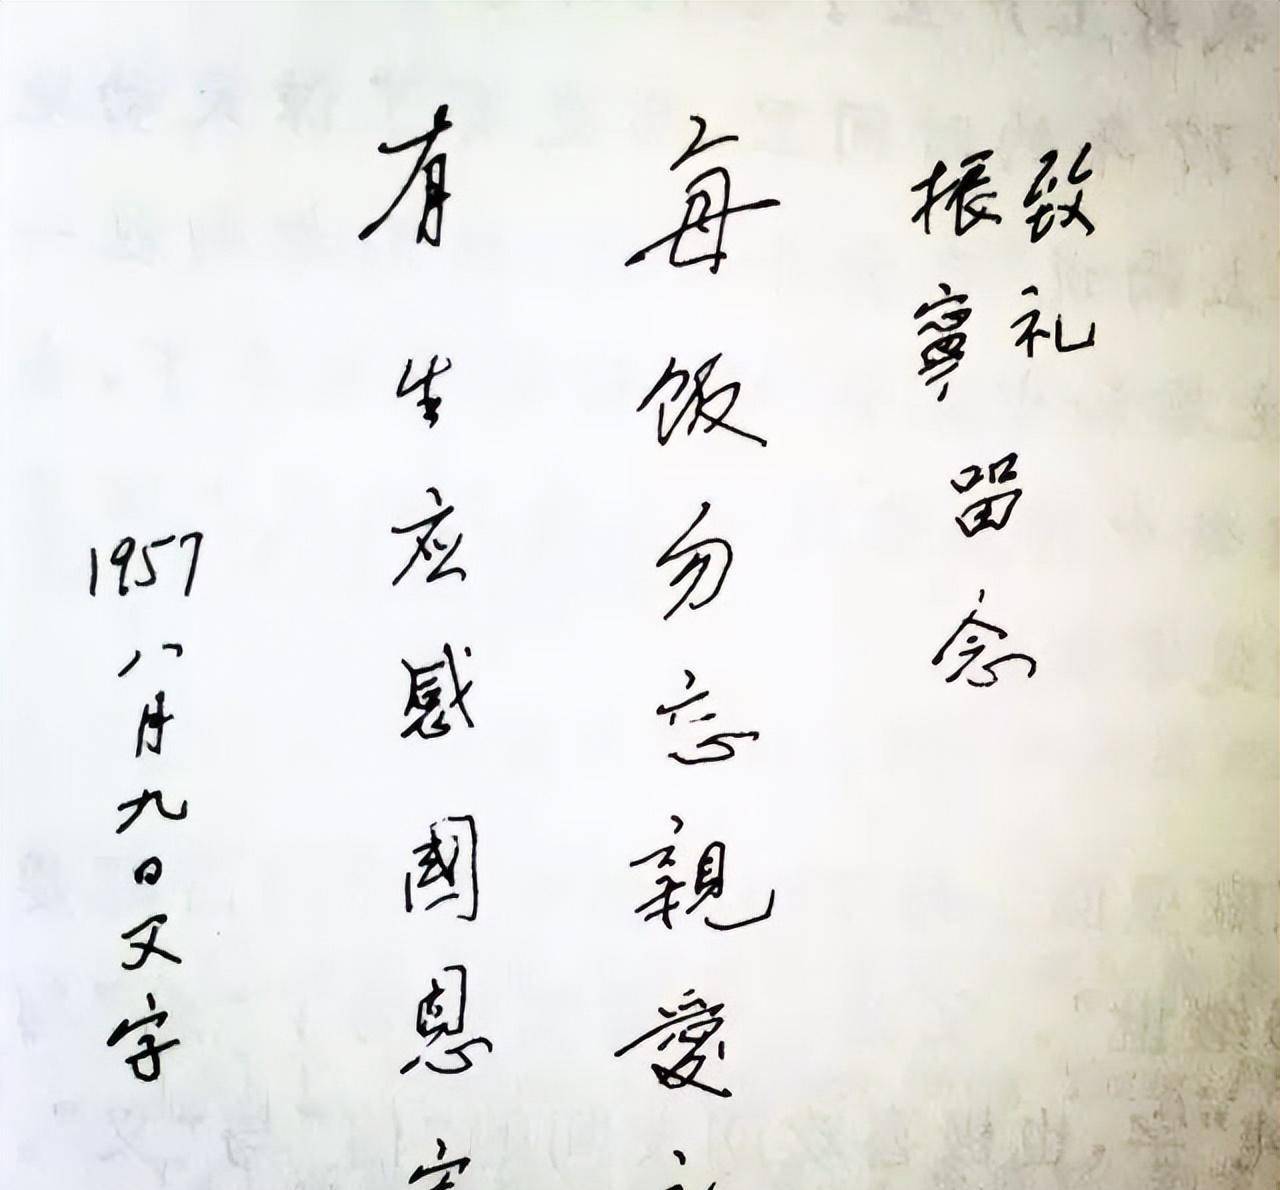 致礼
振寧
留念
每飯勿忘親愛
有生应感國恩
1957八月九日父字